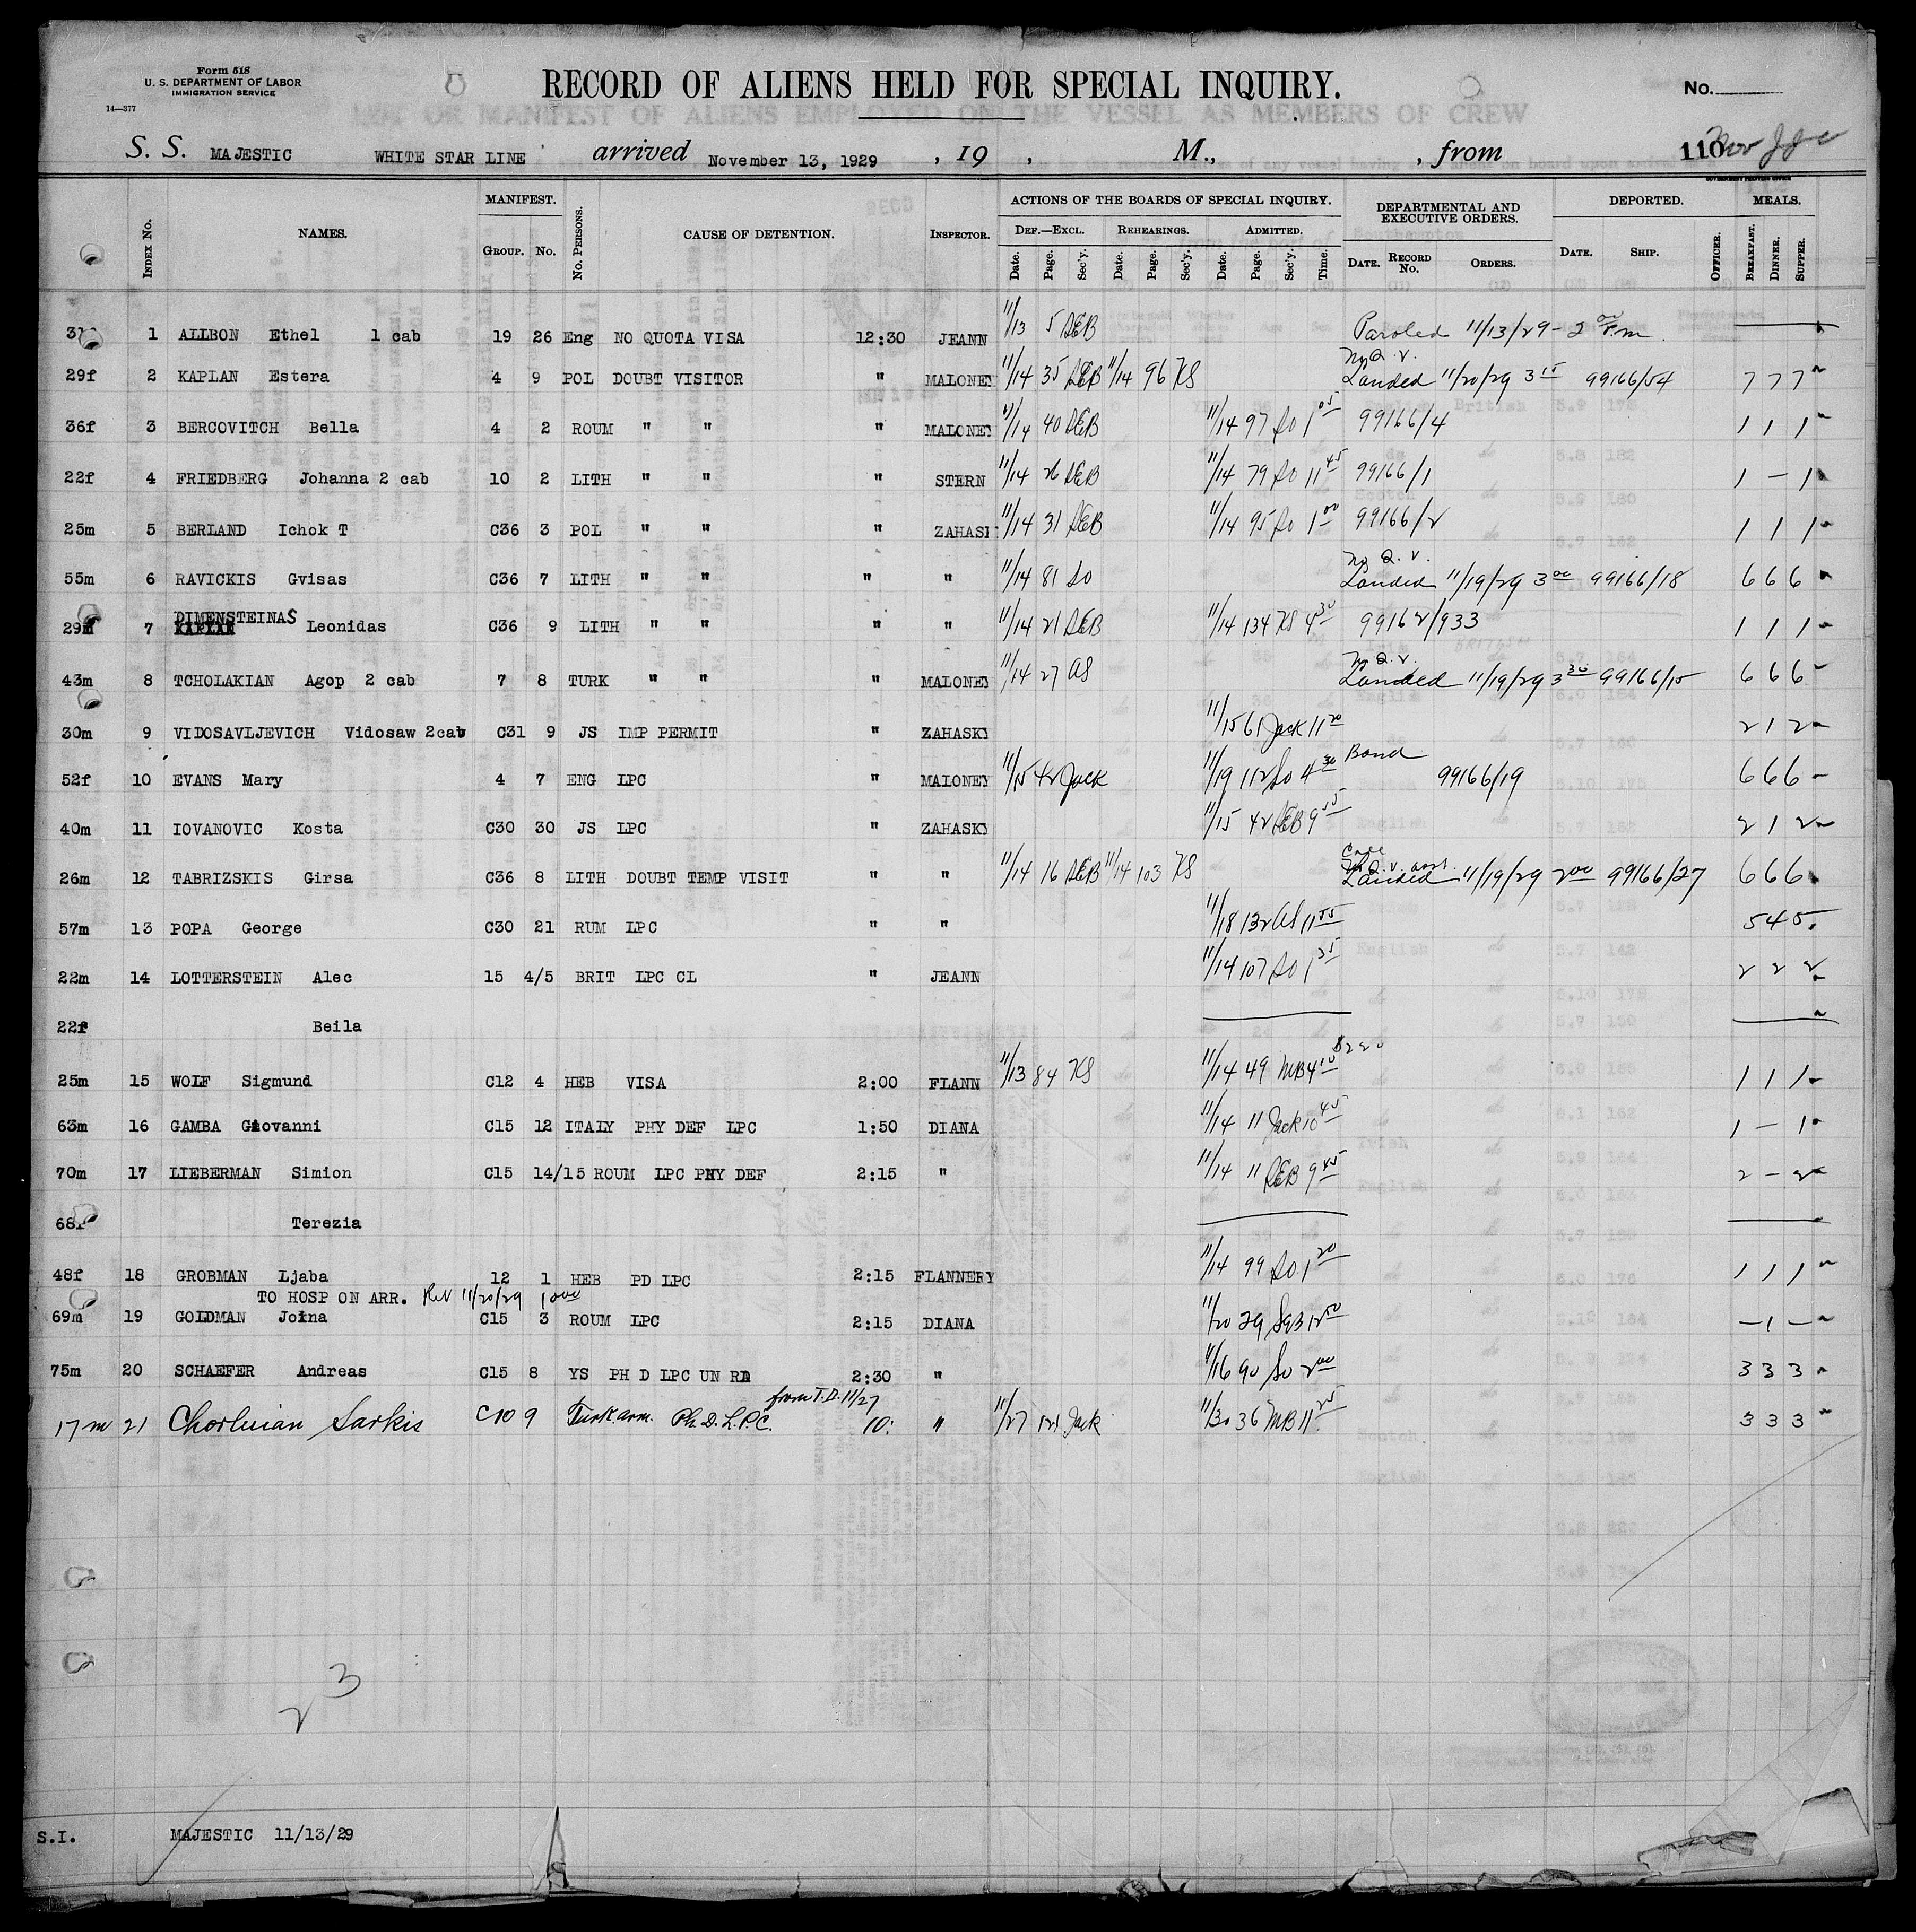 Form 518
U. S. DEPARTMENT OF LABOR
IMMIGRATION SERVICE
14—377
RECORD OF ALIENS HELD FOR SPECIAL INQUIRY.
No.
S. S. MAJESTIC WHITE STAR LINE arrived November 13, 1929 , 19 , M., , from 110
GOVERNMENT PRINTING OFFICE
INDEX No. NAMES. MANIFEST. GROUP. No. No. PERSONS. CAUSE OF DETENTION. INSPECTOR. ACTIONS OF THE BOARDS OF SPECIAL INQUIRY. DEPARTMENTAL AND EXECUTIVE ORDERS. DEPORTED. MEALS.
DEF.—EXCL. REHEARINGS. ADMITTED.
Date. Page. Sec'y. Date. Page. Sec'y. Date. Page. Sec'y. Time. DATE. RECORD No. ORDERS. DATE. SHIP. OFFICER. BREAKFAST. DINNER. SUPPER.
1 ALLBON Ethel 1 cab 19 26 Eng NO QUOTA VISA 12:30 JEANN 11/13 5 DEB Paroled 11/13/29 - 2 00 P.m.
29f 2 KAPLAN Estera 4 9 POL DOUBT VISITOR " MALONEY 11/14 35 DEB 11/14 96 KS No Q. V. Landed 11/20/29 3 15 99166/54 7 7 7
36f 3 BERCOVITCH Bella 4 2 ROUM " " " MALONEY 11/14 40 DEB 11/14 97 So 1 05 99166/4 1 1 1
22f 4 FRIEDBERG Johanna 2 cab 10 2 LITH " " " STERN 11/14 26 DEB 11/14 79 So 11 45 99166/1 1 - 1
25m 5 BERLAND Ichok T C36 3 POL " " " ZAHASK 11/14 31 DEB 11/14 95 So 1 00 99166/2 1 1 1
55m 6 RAVICKIS Gvisas C36 7 LITH " " " " 11/14 81 So No Q. V. Landed 11/19/29 3 00 99166/18 6 6 6
29m 7 DIMENSTEINAS KAPLAN Leonidas C36 9 LITH " " " " 11/14 21 DEB 11/14 134 KS 4 30 99162/933 1 1 1
43m 8 TCHOLAKIAN Agop 2 cab 7 8 TURK " " " MALONEY 11/14 27 AS No Q. V. Landed 11/19/29 3 30 99166/15 6 6 6
30m 9 VIDOSAVLJEVICH Vidosaw 2cab C31 9 JS IMP PERMIT " ZAHASKY 11/15 61 Jack 11 20 2 1 2
52f 10 EVANS Mary 4 7 ENG LPC " MALONEY 11/15 42 Jack 11/19 112 So 4 30 Bond 99166/19 6 6 6
40m 11 IOVANOVIC Kosta C30 30 JS LPC " ZAHASKY 11/15 42 DEB 9 55 2 1 2
26m 12 TABRIZSKIS Girsa C36 8 LITH DOUBT TEMP VISIT " " 11/14 16 DEB 11/14 103 KS Landed 11/19/29 2 00 99166/27 6 6 6
57m 13 POPA George C30 21 RUM LPC " " 11/18 132 AS 11 55 5 4 5
22m 14 LOTTERSTEIN Alec 15 4/5 BRIT LPC CL " JEANN 11/14 107 So 1 35 2 2 2
22f Beila
25m 15 WOLF Sigmund C12 4 HEB VISA 2:00 FLANN 11/13 84 KS 11/14 49 MB 4 10 1 1 1
63m 16 GAMBA Giovanni C15 12 ITALY PHY DEF LPC 1:50 DIANA 11/14 11 Jack 10 45 1 - 1
70m 17 LIEBERMAN Simion C15 14/15 ROUM LPC PHY DEF 2:15 " 11/14 11 DEB 9 45 2 - 2
68f Terezia
48f 18 GROBMAN Ljaba 12 1 HEB PD LPC 2:15 FLANNERY 11/14 99 So 1 20 1 1 1
TO HOSP ON ARR. Rel 11/20/29 10 00
69m 19 GOLDMAN Joina C15 3 ROUM LPC 2:15 DIANA 11/20 29 12 50 - 1 -
75m 20 SCHAEFER Andreas C15 8 YS PH D LPC UN RD 2:30 " 11/16 90 So 2 00 3 3 3
from T.D. 11/27
17m 21 Chorluian Sarkis C10 9 Turk arm. Ph. D. L.P.C. 10: " 11/27 121 Jack 11/30 36 MB 11 25 3 3 3
23
S.I. MAJESTIC 11/13/29